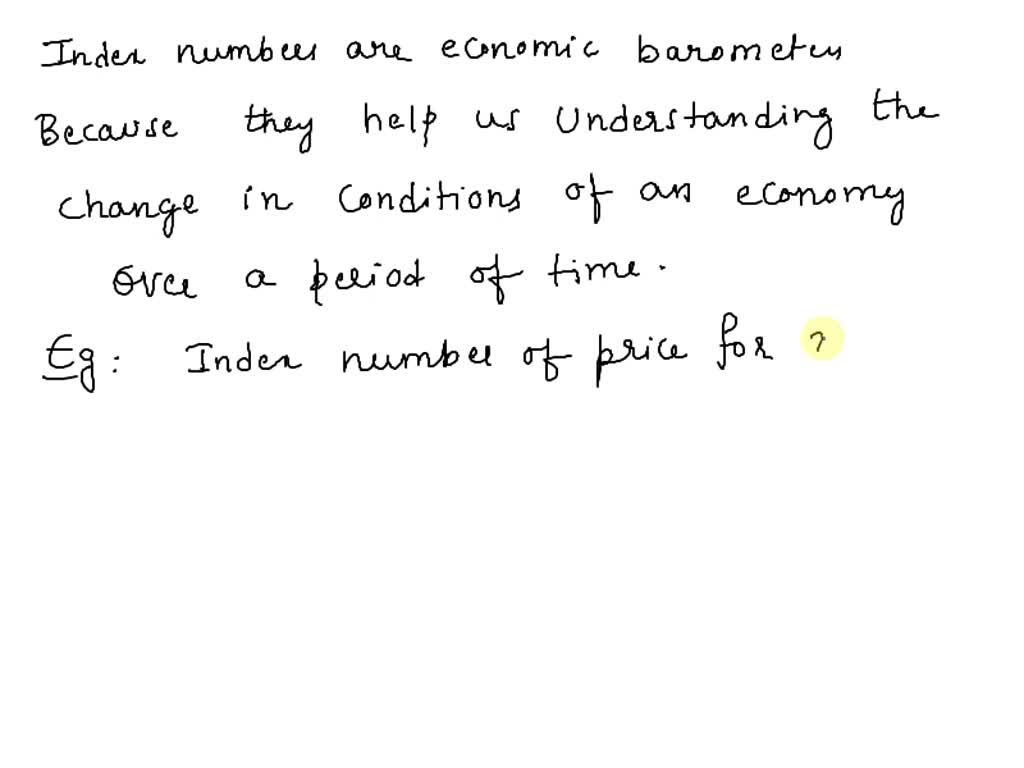 Index numbers are economic barometers
Because they help us Understanding the
change in conditions of an economy
Over a period of time.
Eg: Index number of price for